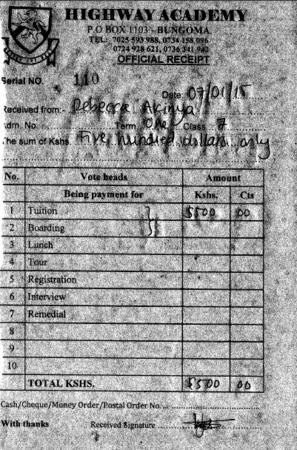 HIGHWAY ACADEMY
P.O BOX 1103 - BUNGOMA
TEL: 7025 593 988, 0734 158 096
0724 928 621, 0736 341 942
OFFICIAL RECEIPT
Serial NO. 110
Date: 07/01/15
Received from:- Rebecca Akinya
Adm. No. Term One Class 7
The sum of Kshs. Five hundred dollars only
No. Vote heads Amount
Being payment for Kshs. Cts
1 Tuition $500 00
2 Boarding
3 Lunch
4 Tour
5 Registration
6 Interview
7 Remedial
8
9
10
TOTAL KSHS. $500 00
Cash/Cheque/Money Order/Postal Order No.
With thanks Received Signature